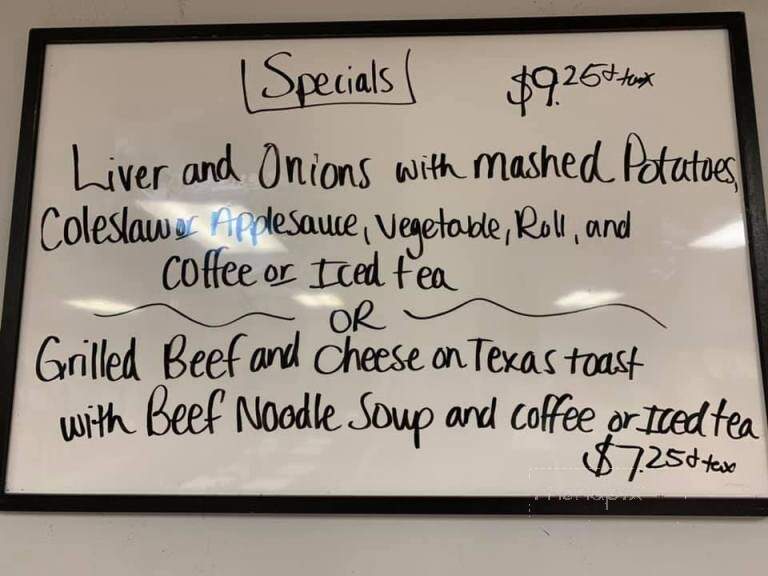 Specials
$9.25 + tax
Liver and Onions with mashed Potatoes,
Coleslaw or Applesauce, Vegetable, Roll, and
Coffee or Iced tea
OR
Grilled Beef and Cheese on Texas toast
with Beef Noodle Soup and coffee or Iced tea
$7.25 + tax